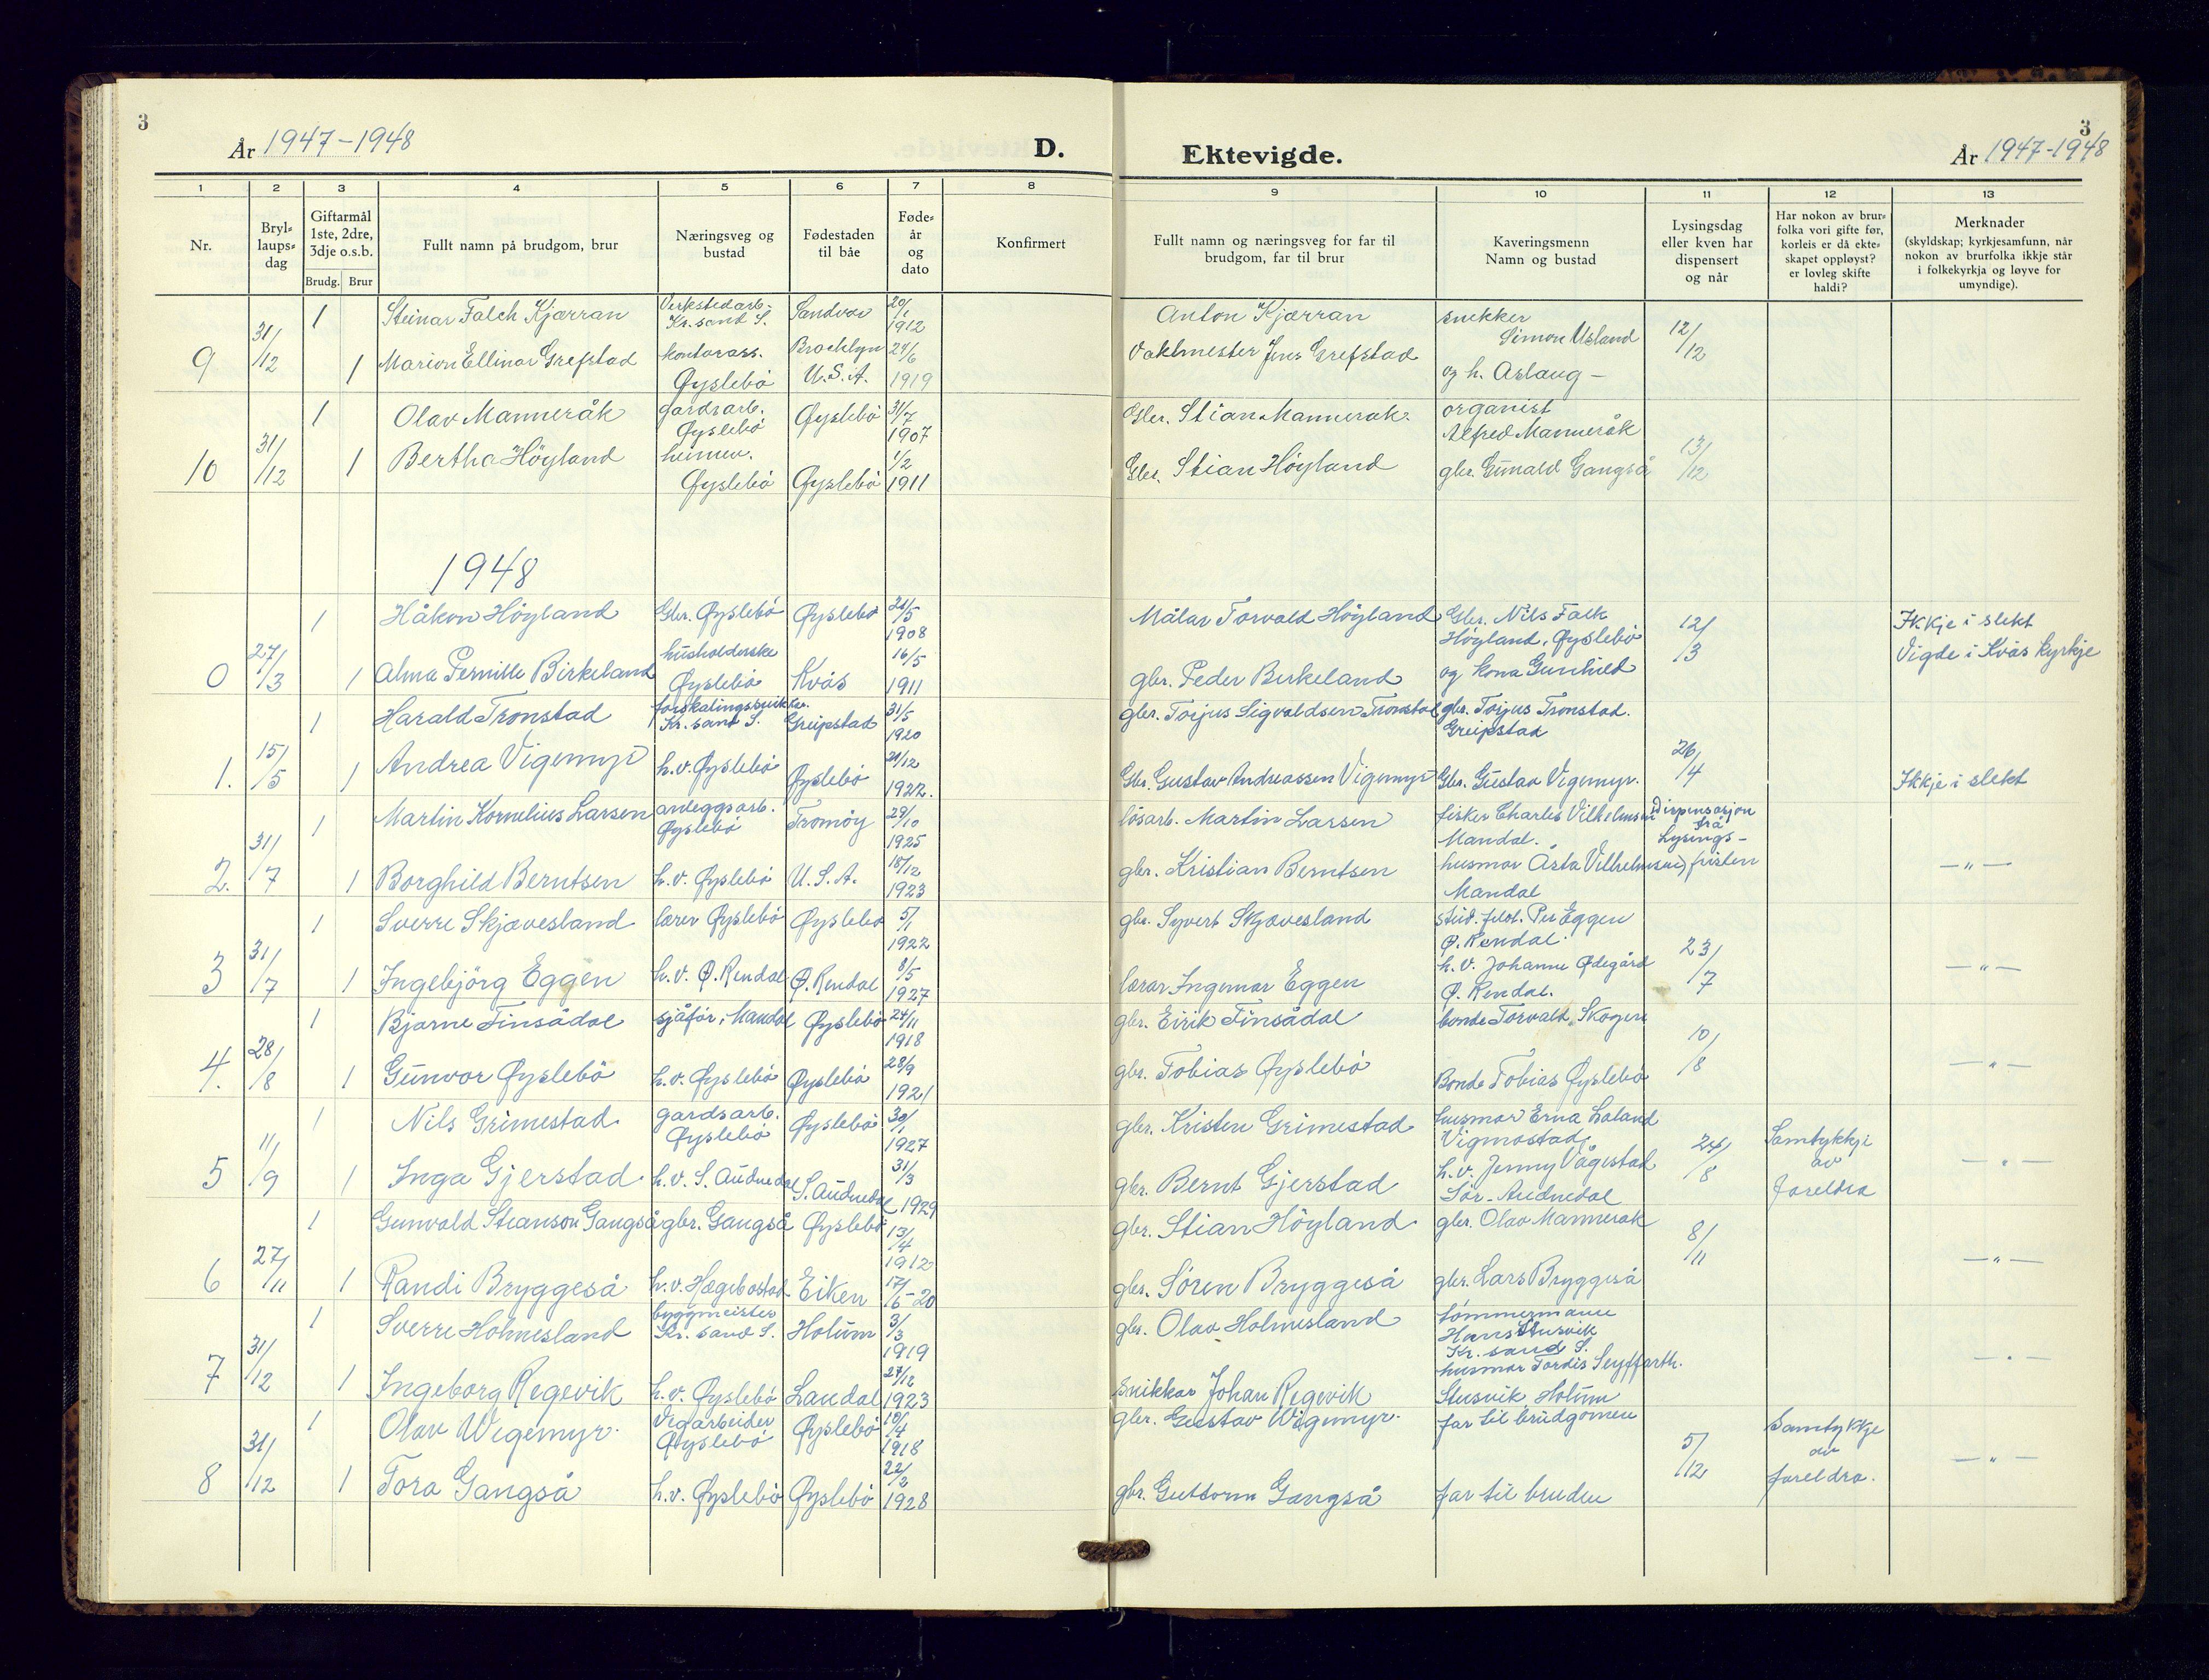 3
År 1947-1948
D.
Ektevigde.
3
År 1947-1948
1 2 3 4 5 6 7 8 9 10 11 12 13
Nr.
Bryl-
laups-
dag
Giftarmål
1ste, 2dre,
3dje o.s.b.
Brudg. Brur
Fullt namn på brudgom, brur
Næringsveg og
bustad
Fødestaden
til båe
Føde-
år
og
dato
Konfirmert
Fullt namn og næringsveg for far til
brudgom, far til brur
Kaveringsmenn
Namn og bustad
Lysingsdag
eller kven har
dispensert
og når
Har nokon av brur-
folka vori gifte før,
korleis er då ekte-
skapet oppløyst?
er lovleg skifte
haldi?
Merknader
(skyldskap; kyrkjesamfunn, når
nokon av brurfolka ikkje står
i folkekyrkja og løyve for
umyndige).
9 31/12
1 Steinar Falch Kjærran Verkstedarb. Kr.sand S. 20/1 1912 Anton Kjærran snekker Simon Usland 12/12
1 Marion Ellinor Grefstad kontorass. Øyslebö Brooklyn U.S.A. 24/6 1919 Vaktmester Jens Grefstad og h. Aslaug -
10 31/12
1 Olav Manneråk gardsarb. Øyslebö Øyslebö 31/7 1907 Gbr. Stian Mannerak. organist Alfred Manneråk 13/12
1 Bertha Höyland heimev. Øyslebö Øyslebö 1/2 1911 Gbr. Stian Höyland gbr. Gunald Gangså
1948
0 27/3
1 Håkon Höyland Gbr. Øyslebö Øyslebö 21/5 1908 Målar Torvald Höyland Gbr. Nils Falk Höyland, Øyslebö 12/3 Ikkje i slekt
1 Alma Pernille Birkeland husholderske Øyslebö Kvås 16/5 1911 gbr. Peder Birkeland og kona Gunhild Vigde i Kvås kyrkje
1. 15/5
1 Harald Tronstad forskalingssnikkar. Kr.sand S. Greipstad 31/5 1920 gbr. Torjus Sigvaldsen Tronstad gbr. Torjus Tronstad. Greipstad 26/4
1 Andrea Vigemyr h.v. Øyslebö Øyslebö 21/12 1922. Gbr. Gustav Andreassen Vigemyr Gbr. Gustav Vigemyr. Ikkje i slekt
2. 31/7
1 Martin Kornelius Larsen anleggsarb. Øyslebö Tromöy 29/10 1925 lösarb. Martin Larsen fisker Charles Vilhelmsen Mandal. Dispensasjon frå Lysings-
1 Borghild Berntsen h.v. Øyslebö U.S.A. 18/12 1923 gbr. Kristian Berntsen husmor Åsta Vilhelmsen Mandal fristen — " —
3 31/7
1 Sverre Skjævesland lærer Øyslebö Øyslebö 5/1 1922 gbr. Syvert Skjævesland stud. filol. Per Eggen Ø. Rendal. 23/7
1 Ingebjörg Eggen h.v. Ø. Rendal Ø. Rendal 8/5 1927 lærar Ingemar Eggen h.v. Johanne Ødegård Ø. Rendal. — " —
4. 28/8
1 Bjarne Finsådal sjåför, Mandal Øyslebö 24/11 1918 gbr. Eirik Finsådal bonde Torvald Skogen 10/8
1 Gunvor Øyslebö h.v. Øyslebö Øyslebö 28/9 1921 gbr. Tobias Øyslebö Bonde Tobias Øyslebö — " —
5 11/9
1 Nils Grimestad. gardsarb. Øyslebö Øyslebö 30/1 1927 gbr. Kristen Grimestad husmor Erna Laland Vigmostad, 24/8 Samtykkje av foreldra
1 Inga Gjerstad. h.v. S. Audnedal S. Audnedal 31/3 1929 gbr. Bernt Gjerstad h.v. Jenny Vågestad Sör-Audnedal — " —
6 27/11
1 Gunvald Stianson Gangså gbr. Gangså Øyslebö 13/4 1912 gbr. Stian Höyland. gbr. Olav Mannerak 8/11
1 Randi Bryggeså h.v. Hægebostad Eiken 17/6-20 gbr. Sören Bryggeså gbr. Lars Bryggeså — " —
7 31/12
1 Sverre Holmesland byggmeister Kr.sand S. Holum 3/3 1919 gbr. Olav Holmesland tömmermann Hans Stusvik Kr. sand S.
1 Ingeborg Regevik h.v. Øyslebö Laudal 27/12 1923 snikkar Johan Regevik husmor Tordis Seyffarth. Stusvik Holum — " —
8 31/12
1 Olav Wigemyr. Vegarbeider Øyslebö Øyslebö 10/4 1918 gbr. Gustav Wigemyr. far til brudgomen 5/12 Samtykkje av foreldra.
1 Tora Gangså h.v. Øyslebö Øyslebö 22/2 1928 gbr. Guttorm Gangså far til bruden — " —